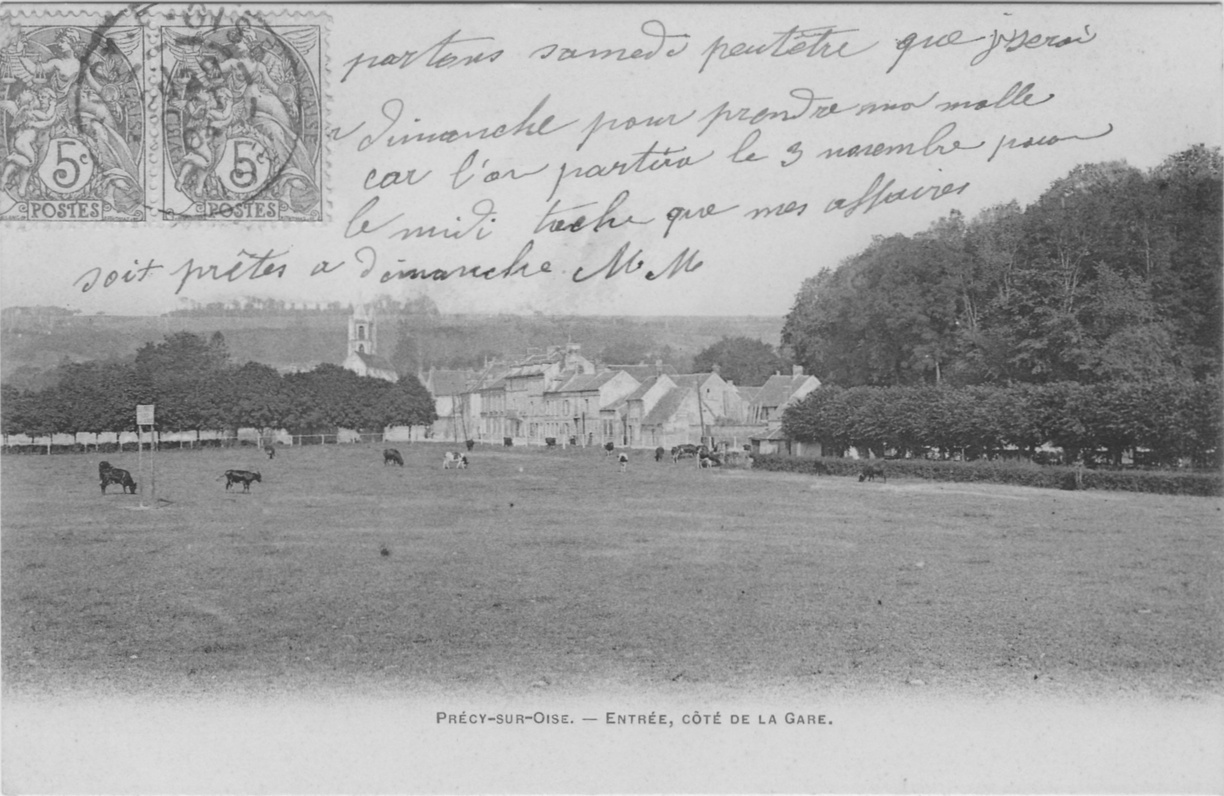 partons samedi peutêtre que j'y serai
dimanche pour prendre ma malle
car l'on partira le 3 novembre pour
le midi tache que mes affaires
soit prêtes a dimanche M M
5c
POSTES
5c
POSTES
PRÉCY-SUR-OISE. — ENTRÉE, CÔTÉ DE LA GARE.